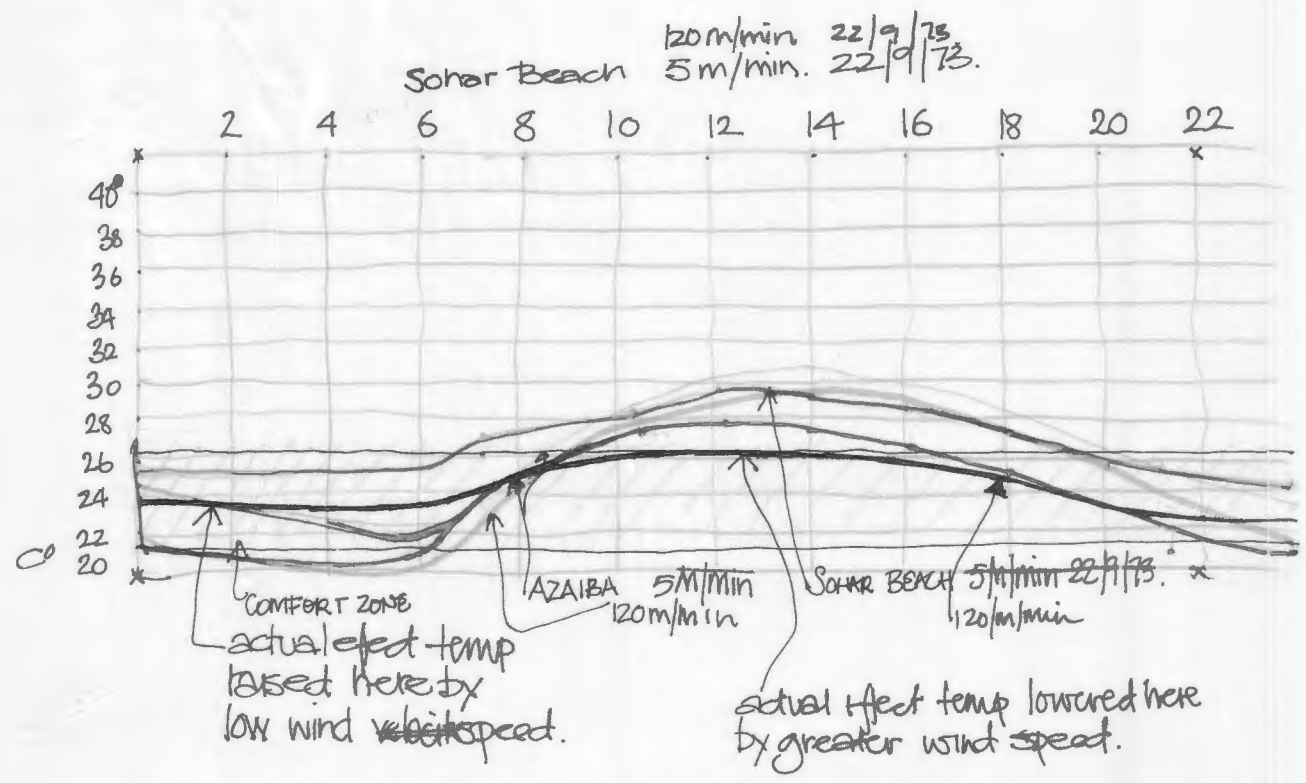 120 m/min 22/9/73
Sohar Beach 5 m/min. 22/9/73.
2 4 6 8 10 12 14 16 18 20 22
40°
38
36
34
32
30
28
26
24
22
C° 20
COMFORT ZONE
AZAIBA 5M/Min
120 m/min
SOHAR BEACH 5M/min 22/9/73.
120/m/min
actual efect temp
raised here by
low wind velocity speed.
actual effect temp lowered here
by greater wind speed.